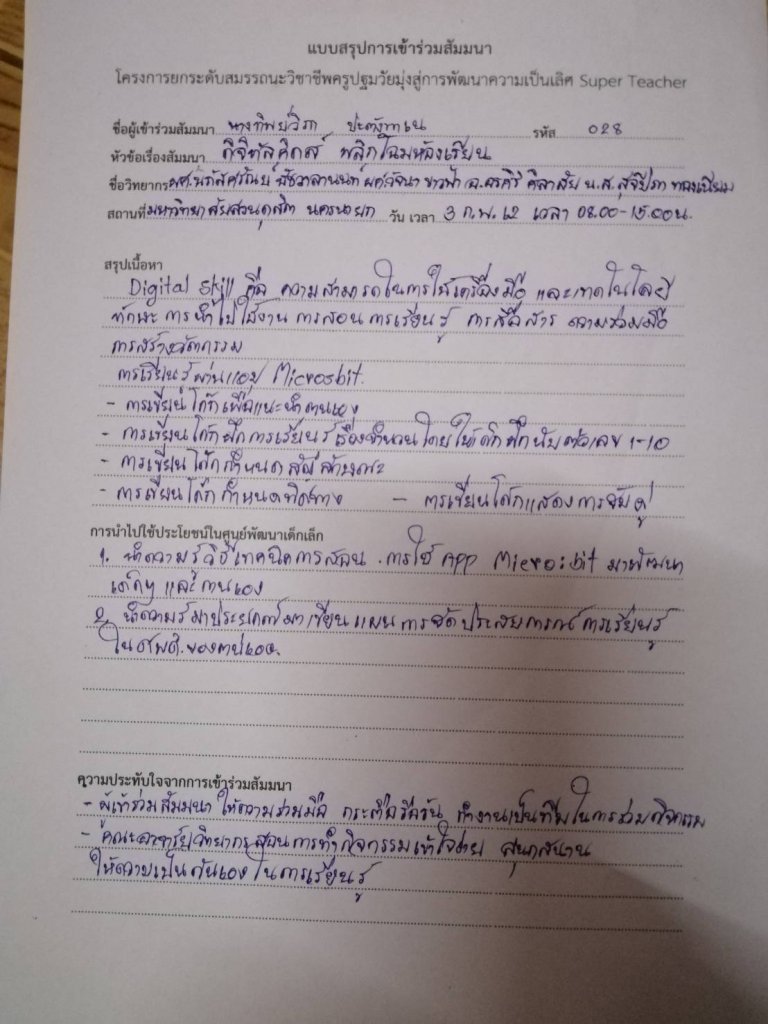 แบบสรุปการเข้าร่วมสัมมนา
โครงการยกระดับสมรรถนะวิชาชีพครูปฐมวัยมุ่งสู่การพัฒนาความเป็นเลิศ Super Teacher
ชื่อผู้เข้าร่วมสัมมนา นางทิพย์วิภา รหัส 028
หัวข้อเรื่องสัมมนา ดิจิทัลคิดส์ พลิกโฉมห้องเรียน
ชื่อวิทยากร ผศ.
สถานที่ มหาวิทยาลัยสวนดุสิต นครนายก วัน เวลา 3 ก.พ. 62 เวลา 08.00-15.00น.
สรุปเนื้อหา
Digital Skill คือ ความสามารถในการใช้เครื่องมือ และเทคโนโลยี
ทักษะ การนำไปใช้งาน การสอน การเรียนรู้ การสื่อสาร ความร่วมมือ
การสร้างนวัตกรรม
การเรียนรู้ผ่านแอป Microsbit.
- การเขียนโค้ดเพื่อแนะนำตนเอง
- การเขียนโค้ดฝึกการเรียนรู้เรื่องจำนวนโดยให้เด็กฝึกนับตัวเลข 1-10
- การเขียนโค้ดกำหนดสัญลักษณะ
- การเขียนโค้ดกำหนดทิศทาง - การเขียนโค้ดแสดงการจับคู่
การนำไปใช้ประโยชน์ในศูนย์พัฒนาเด็กเล็ก
1. นำความรู้วิธีเทคนิคการสอน การใช้ App Micro:bit มาพัฒนา
เด็กๆ และตนเอง
2. นำความรู้มาประยุกต์มาเขียนแผนการจัดประสบการณ์การเรียนรู้
ใน ศพด. ของตนเอง
ความประทับใจจากการเข้าร่วมสัมมนา
- ผู้เข้าร่วมสัมมนาให้ความร่วมมือ กระตือรือร้น ทำงานเป็นทีมในการร่วมกิจกรรม
- คณะอาจารย์วิทยากรสอนการทำกิจกรรมเข้าใจง่าย สนุกสนาน
ให้ความเป็นกันเองในการเรียนรู้